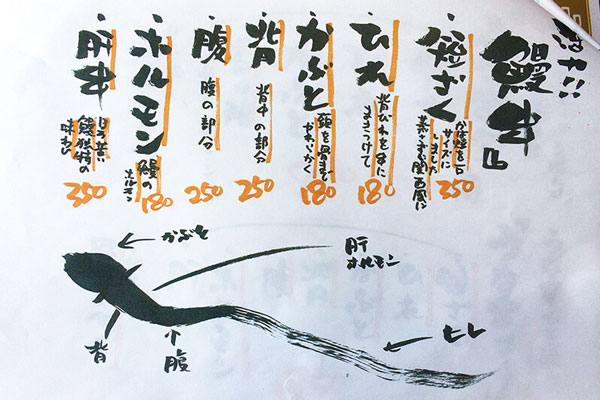 はや!!
鰻串
・短ざく
蒲焼を一口
サイズに
しました
素々ぎ関西風に
350
・ひれ
背びれを串に
まきつけて
180
・かぶと
頭を骨まで
やわらかく
180
・背
背中の部分
250
・腹
腹の部分
250
・ホルモン
鰻の
ホルモン
180
・肝串
ほろ苦い
鰻独特の
味わい
350
かぶと
肝
ホルモン
ヒレ
背
腹